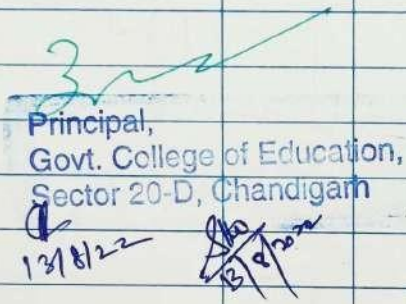 Principal,
Govt. College of Education,
Sector 20-D, Chandigarh
13/8/22
13/8/2022